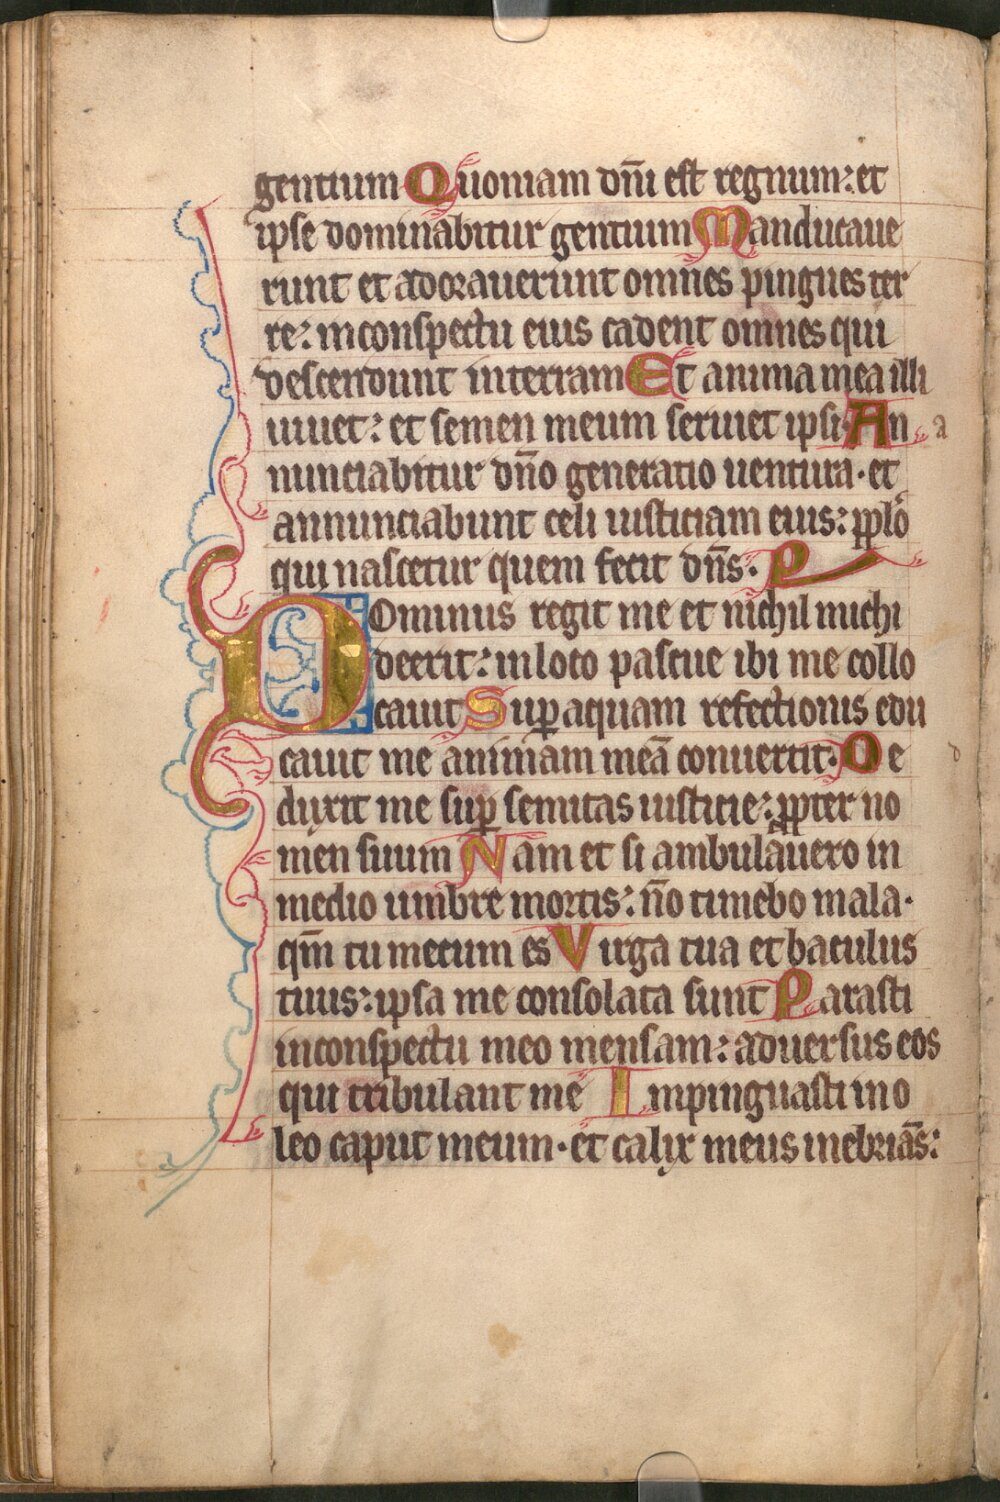 gentium Quoniam dñi est regnum: et
ipse dominabitur gentium Manducaue
runt et adorauerunt omnes pingues ter
re: in conspectu eius cadent omnes qui
descendunt in terram Et anima mea illi
uiuet: et semen meum seruiet ipsi An a
nunciabitur dño generatio uentura · et
annunciabunt celi iusticiam eius: pplo
qui nascetur quem fecit dñs. P
Dominus regit me et nichil michi
deerit: in loco pascue ibi me collo
cauit Sup aquam refectionis edu
cauit me animam meā conuertit. De d
duxit me sup semitas iusticie: ppter no
men suum Nam et si ambulauero in
medio umbre mortis: ño timebo mala ·
qm̄ tu mecum es Virga tua et baculus
tuus: ipsa me consolata sunt Parasti
in conspectu meo mensam: aduersus eos
qui tribulant me Impinguasti in o
leo caput meum · et calix meus inebriās: